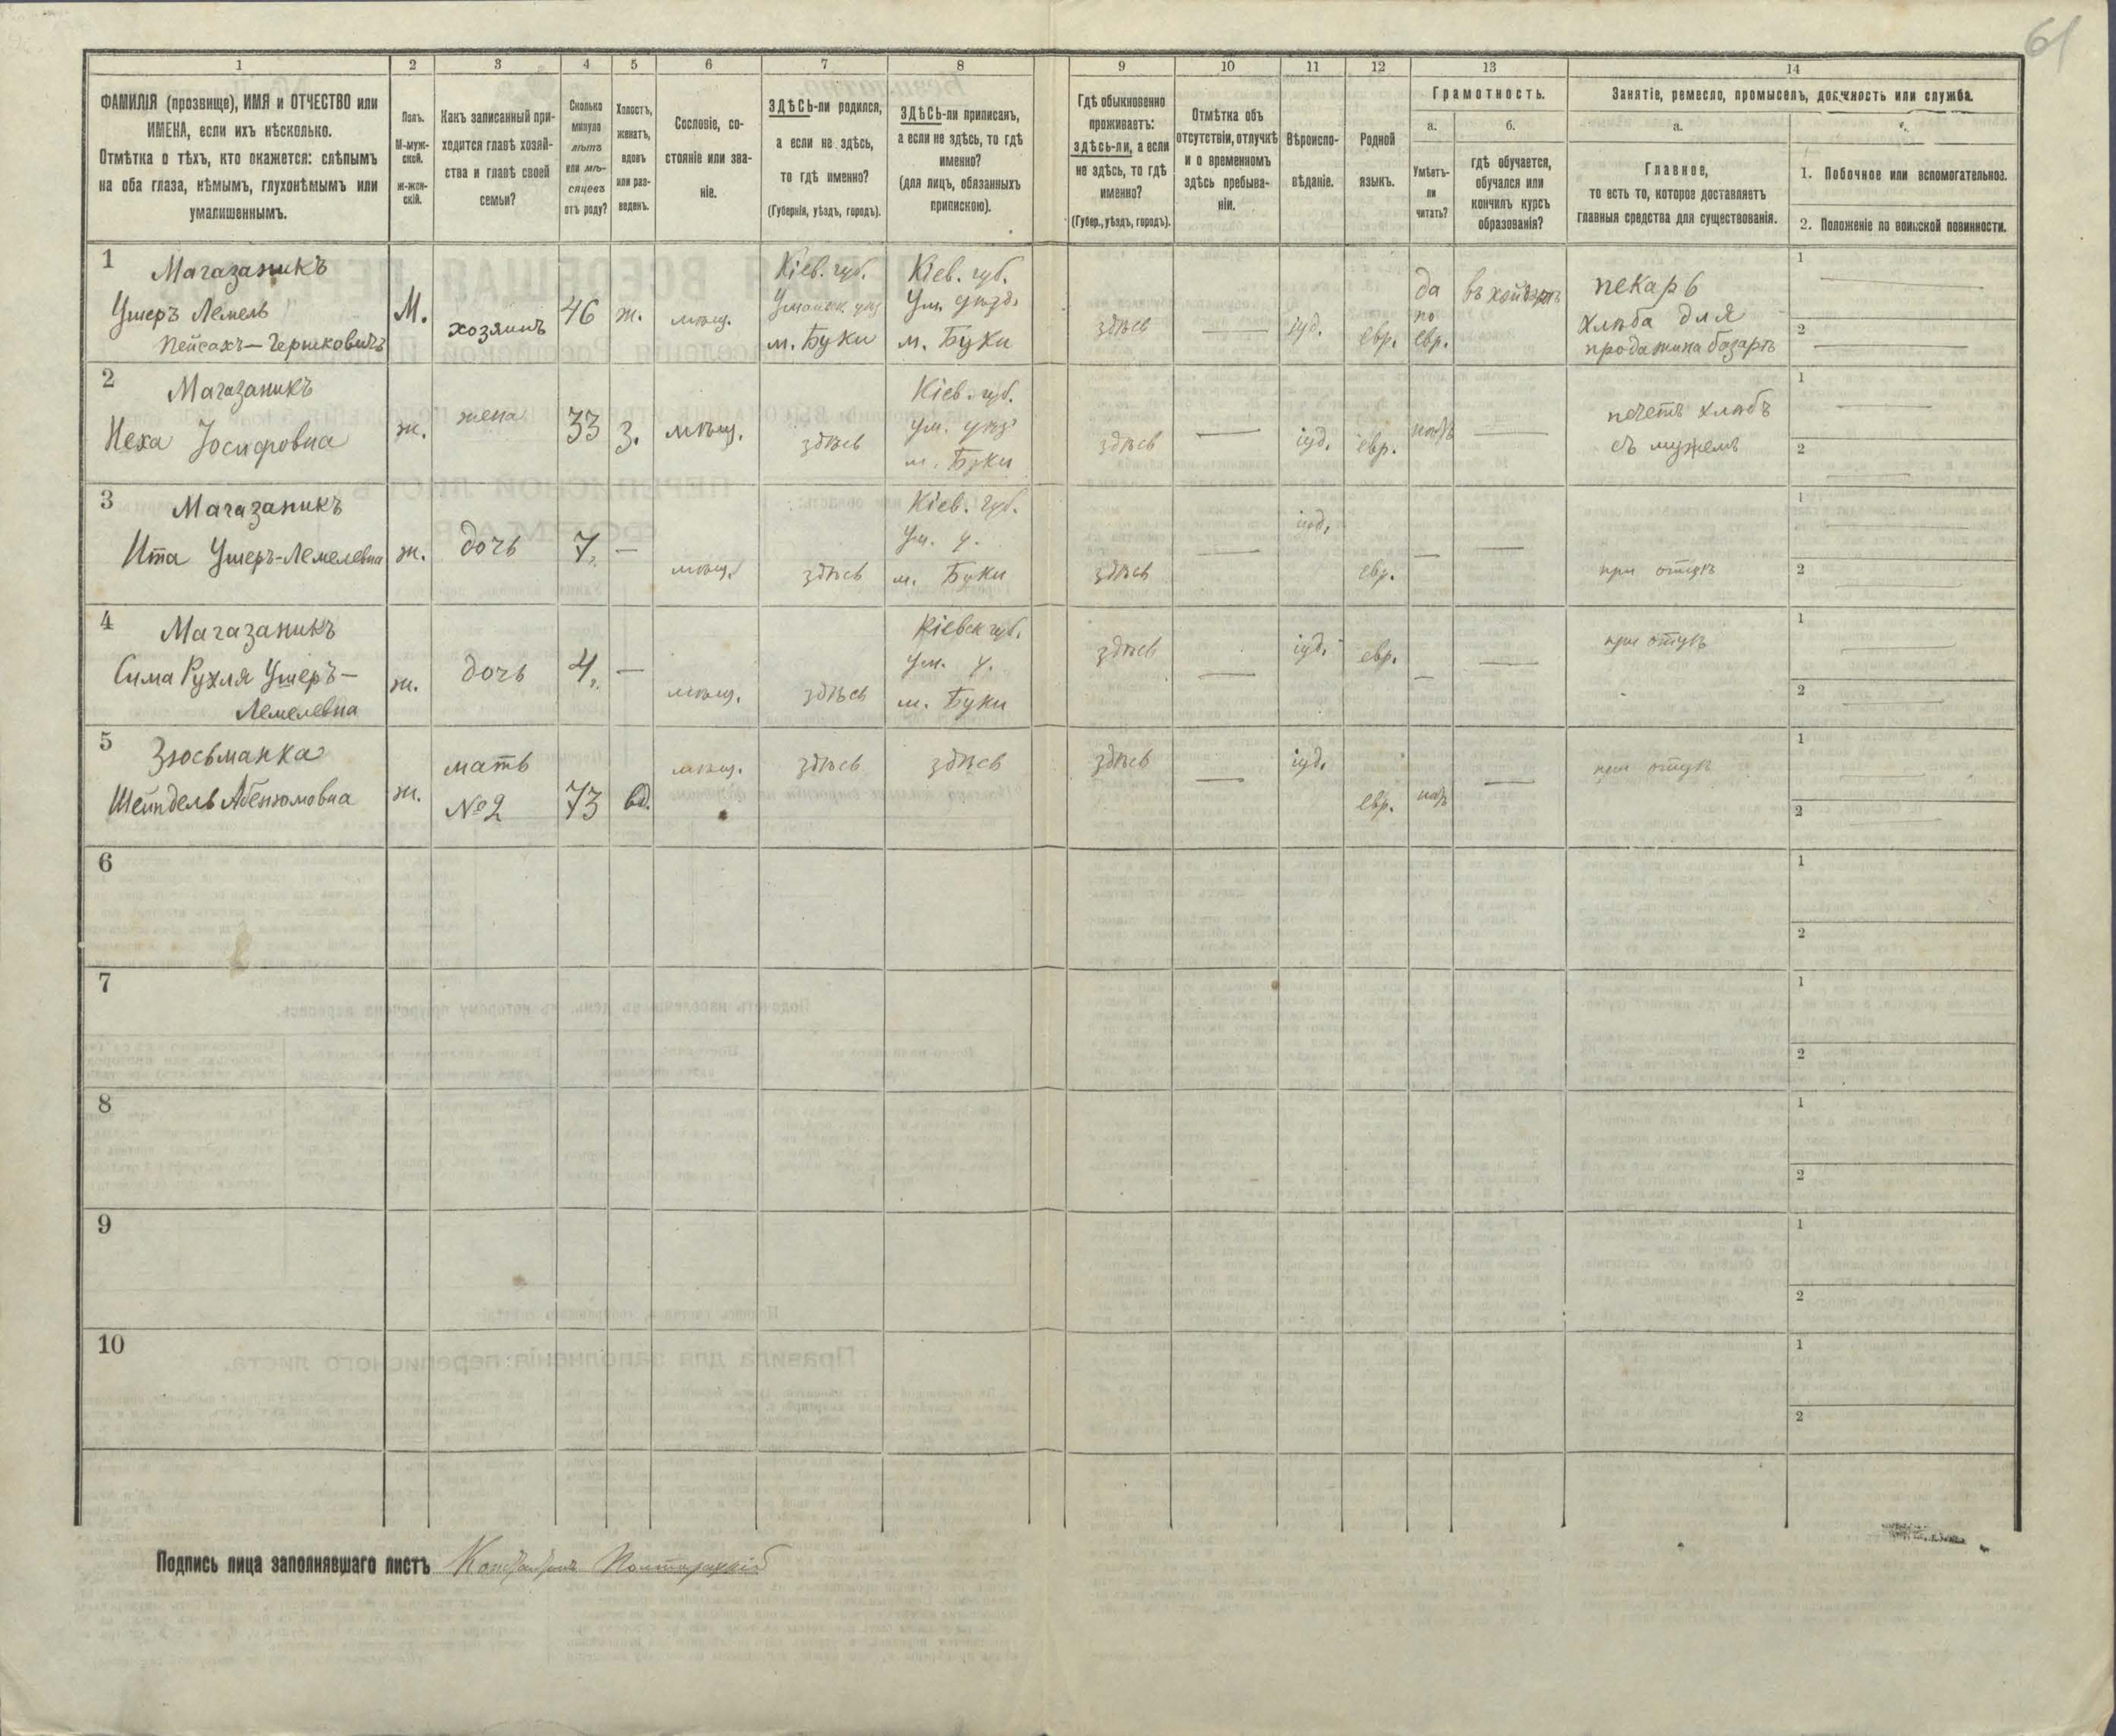 61
1
2
3
4
5
6
7
8
9
10
11
12
13
14
ФАМИЛІЯ (прозвище), ИМЯ и ОТЧЕСТВО или
ИМЕНА, если ихъ нѣсколько.
Отмѣтка о тѣхъ, кто окажется: слѣпымъ
на оба глаза, нѣмымъ, глухонѣмымъ или
умалишеннымъ.
Полъ.
М-муж-
ской.
ж-жен-
скій.
Какъ записанный при-
ходится главѣ хозяй-
ства и главѣ своей
семьи?
Сколько
минуло
лѣтъ
или мѣ-
сяцевъ
отъ роду?
Холостъ,
женатъ,
вдовъ
или раз-
веденъ.
Сословіе, со-
стояніе или зва-
ніе.
ЗДѢСЬ-ли родился,
а если не здѣсь,
то гдѣ именно?
(Губернія, уѣздъ, городъ).
ЗДѢСЬ-ли приписанъ,
а если не здѣсь, то гдѣ
именно?
(для лицъ, обязанныхъ
припискою).
Гдѣ обыкновенно
проживаетъ:
здѣсь-ли, а если
не здѣсь, то гдѣ
именно?
(Губер., уѣздъ, городъ).
Отмѣтка объ
отсутствіи, отлучкѣ
и о временномъ
здѣсь пребыва-
ніи.
Вѣроиспо-
вѣданіе.
Родной
языкъ.
Грамотность.
а.
Умѣетъ-
ли
читать?
б.
гдѣ обучается,
обучался или
кончилъ курсъ
образованія?
Занятіе, ремесло, промыселъ, должность или служба.
а.
Главное,
то есть то, которое доставляетъ
главныя средства для существованія.
1. Побочное или вспомогательное.
2. Положеніе по воинской повинности.
1
Магазаникъ
Ушеръ Лемель
Пейсахъ-Гершковичъ
М.
хозяинъ
46
ж.
мѣщ.
Кіев. губ.
Уманск. уѣз
м. Буки
Кіев. губ.
Ум. уѣзд.
м. Буки
здѣсь
—
іуд.
евр.
да
по
евр.
пекарь
хлѣба для
продажи на базарѣ
1 —
2 —
2
Магазаникъ
Неха Іосифовна
ж.
жена
33
З.
мѣщ.
здѣсь
Кіев. губ.
Ум. уѣз
м. Буки
здѣсь
—
іуд.
евр.
—
печетъ хлѣбъ
съ мужемъ
1 —
2 —
3
Магазаникъ
Ита Ушеръ-Лемелевна
ж.
дочь
7
—
мѣщ.
здѣсь
Кіев. губ.
Ум. у.
м. Буки
здѣсь
—
іуд.
евр.
—
—
при отцѣ
1 —
2 —
4
Магазаникъ
Сима Рухля Ушеръ-
Лемелевна
ж.
дочь
4
—
мѣщ.
здѣсь
Кіевск губ.
Ум. у.
м. Буки
здѣсь
—
іуд.
евр.
—
—
при отцѣ
1 —
2 —
5
Зюсьманка
Шейндель Абенюмовна
ж.
мать
№2
73
вд.
мѣщ.
здѣсь
здѣсь
здѣсь
—
іуд.
евр.
—
1 —
2 —
6
1
2
7
1
2
8
1
2
9
1
2
10
1
2
Подпись лица заполнявшаго листъ